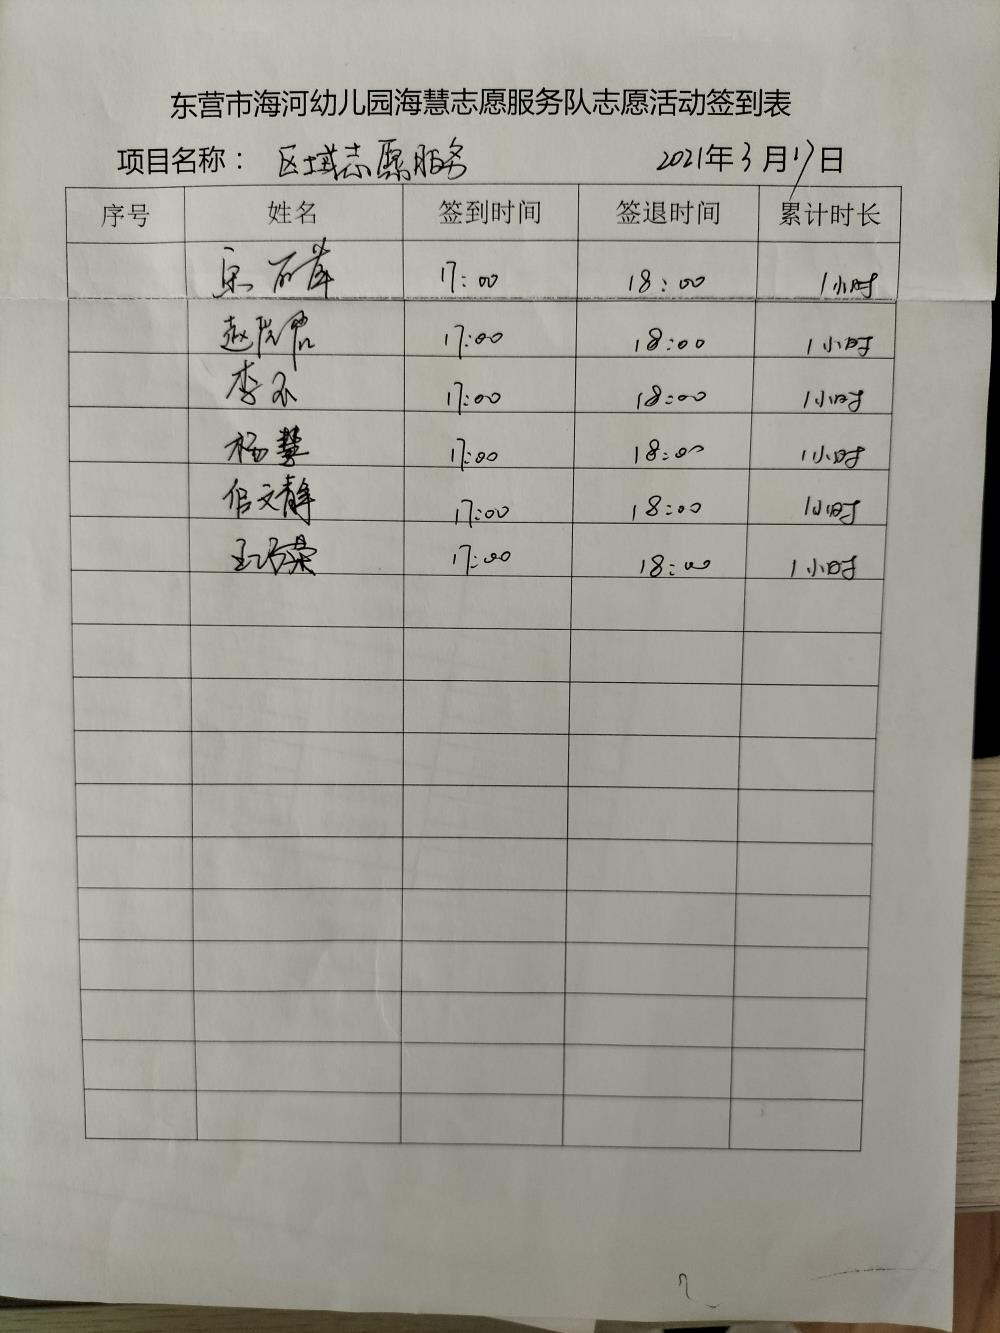 东营市海河幼儿园海慧志愿服务队志愿活动签到表
项目名称： 区域志愿服务 2021年3月17日
序号 姓名 签到时间 签退时间 累计时长
17:00 18:00 1小时
赵 17:00 18:00 1小时
李 17:00 18:00 1小时
杨慧 17:00 18:00 1小时
文静 17:00 18:00 1小时
王巧荣 17:00 18:00 1小时